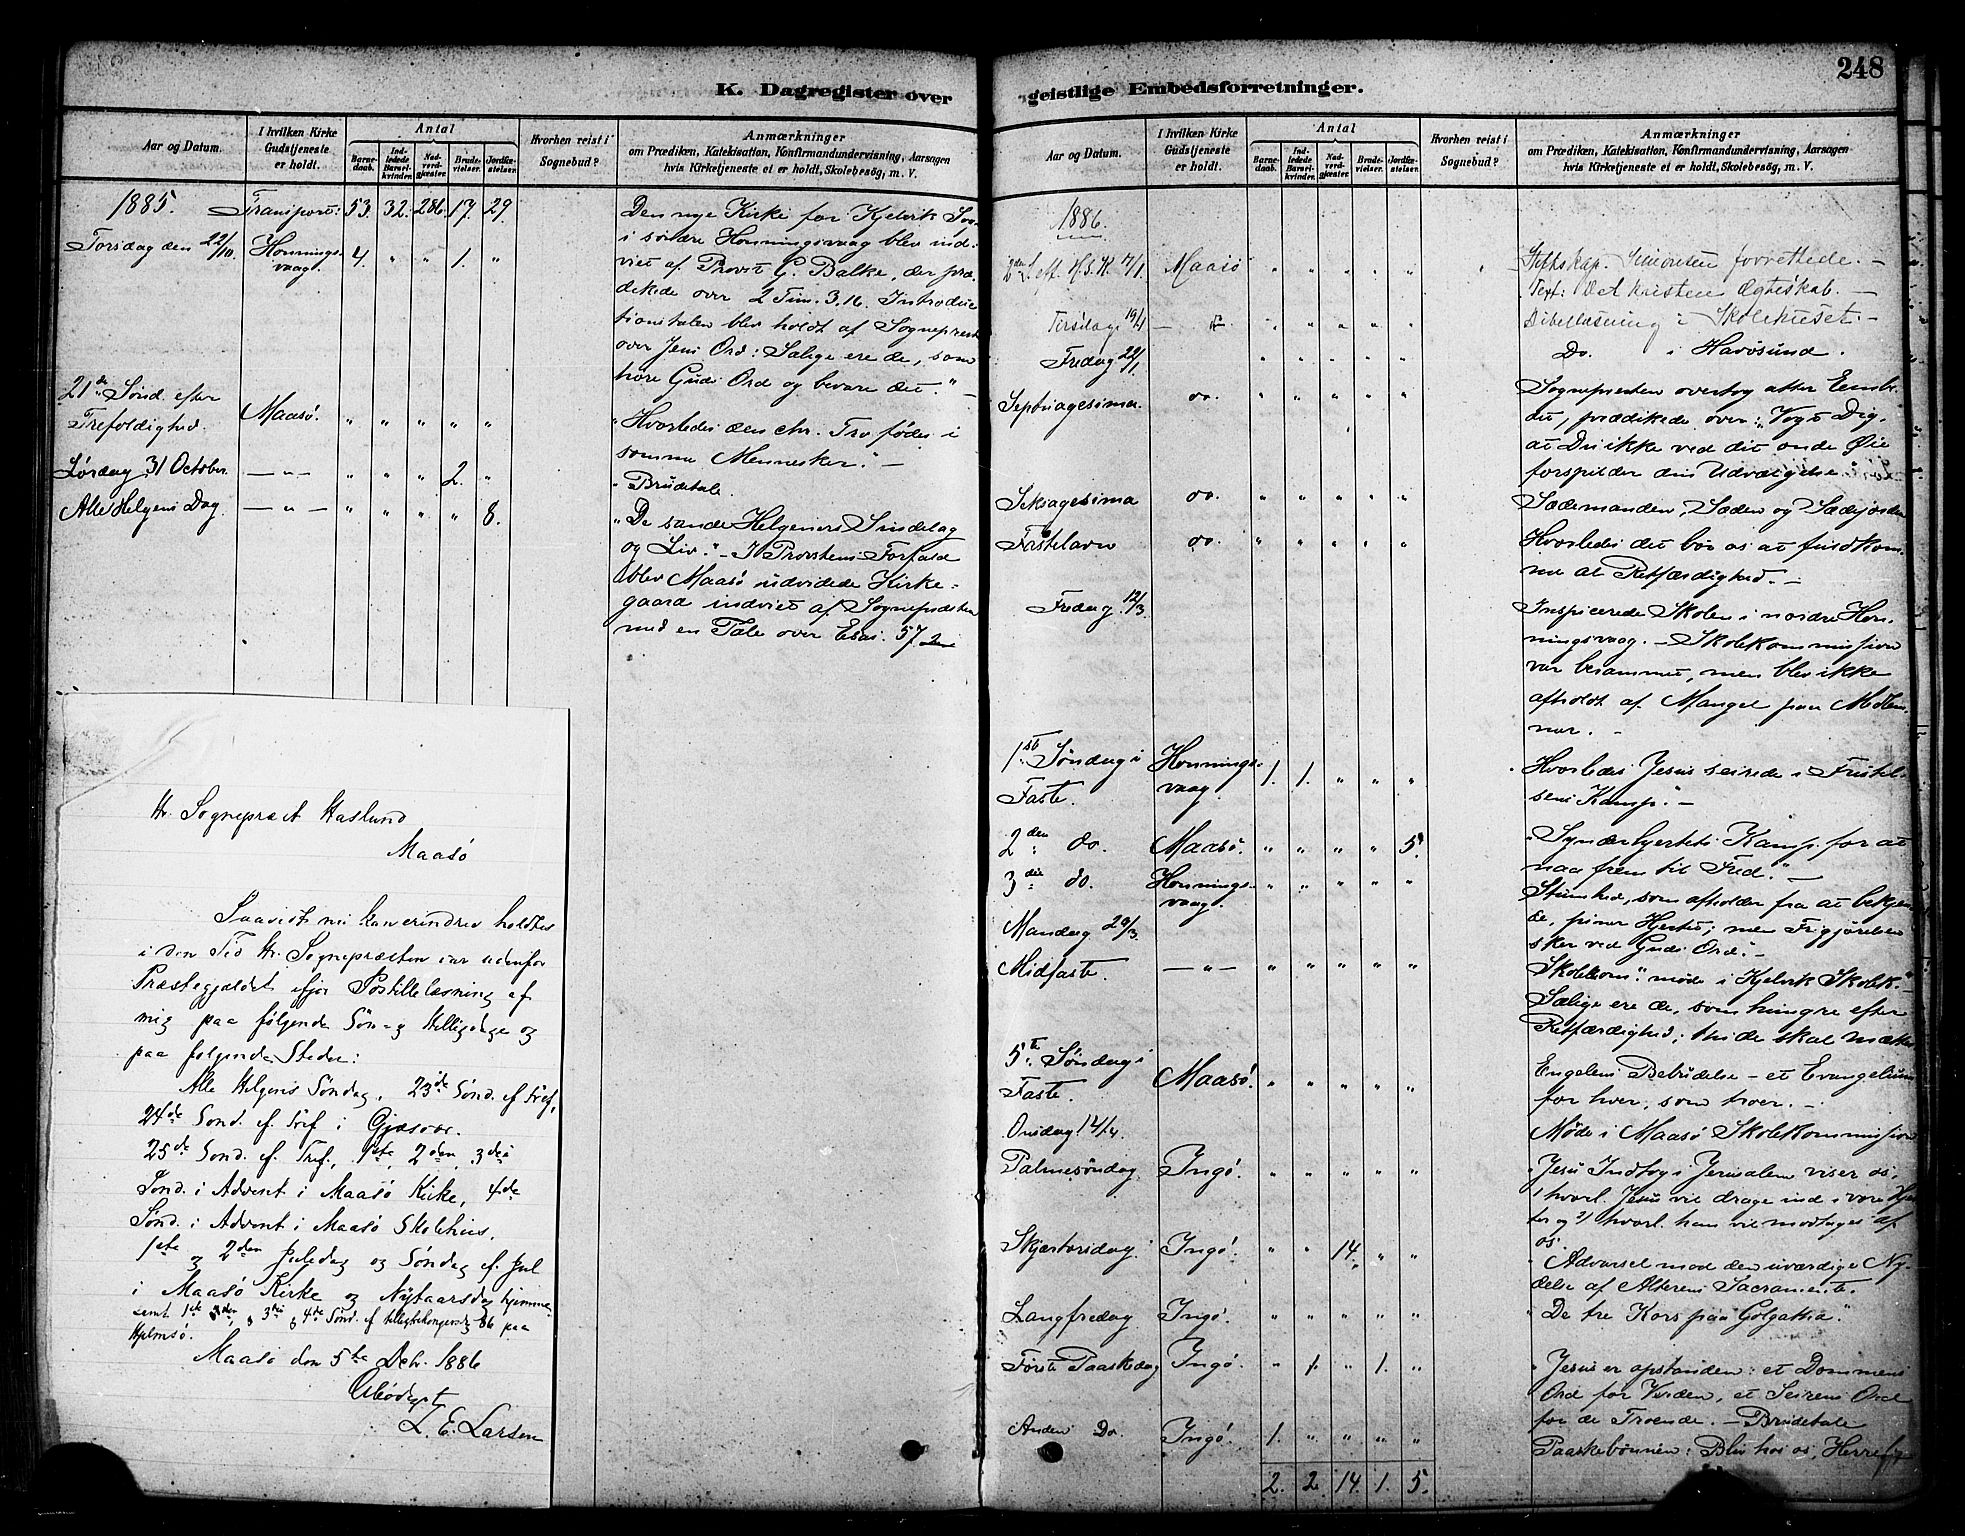 248
K. Dagregister over
geistlige Embedsforretninger.
Aar og Datum.
I hvilken Kirke Gudstjeneste er holdt.
Antal
Barnedaab.
Indledede Barselkvinder.
Nadverdgjester.
Brudevielser.
Jordfæstelser.
Hvorhen reist i Sognebud?
Anmærkninger
om Prædiken, Katekisation, Konfirmandundervisning, Aarsagen
hvis Kirketjeneste ei er holdt, Skolebesög, m. V.
1885. Transport: 53. 32. 286. 17. 29.
Torsdag den 22/10. Honningsvaag. 4. " " 1. "
Den nye Kirke for Kjelvik Sogn
i søndre Honningsvaag blev ind-
viet af Provst G. Balke, der præ-
dikede over 2 Tim. 3.16. Introduc-
tionstalen blev holdt af Sognepræst
over Jesu Ord: Salige ere de, som
høre Guds Ord og bevare det." –
21de Sønd. efter
Trefoldighed. Maasø. " " " " "
"Hvorledes den chr. Tro fødes i
somme Mennesker." –
Lørdag 31 October. — " — " " " 2. "
"Brudetale.
Alle Helgens Dag. — " — " " " " 8.
"De sande Helgeners Sindelag
og Liv." – I Provstens Forfald
blev Maasø udvidede Kirke-
gaard indviet af Sognepræsten
med en Tale over Esai. 57.2
Hr. Sognepræst Haslund
Maasø
Saavidt mei kan erindres holdtes
i den Tid Hr. Sognepræsten var udenfor
Præstegjeldet ifjor Postillelæsning af
mig paa følgende Søn- og Helligdage og
paa følgende Steder:
Alle Helgens Søndag, 23de Sønd. ef Tref,
24de Sønd. ef. Tref i Gjæsvær.
25de Sønd. ef. Tref., 1ste, 2den, 3die
Sønd. i Advent i Maasø Kirke, 4de
Sønd. i Advent i Maasø Skolehus.
1ste og 2den Juledag og Søndag ef. Jul
i Maasø Kirke og Nytaarsdag hjemme
samt 1ste 2den, 3die & 4de Sønd. ef helligtrekongersdg 86 paa
Hjelmsø.
Maasø den 5te Debr. 1886
Ærbødigst
L. E. Larsen
Aar og Datum.
I hvilken Kirke Gudstjeneste er holdt.
Antal
Barnedaab.
Indledede Barselkvinder.
Nadverdgjester.
Brudevielser.
Jordfæstelser.
Hvorhen reist i Sognebud?
Anmærkninger
om Prædiken, Katekisation, Konfirmandundervisning, Aarsagen
hvis Kirketjeneste ei er holdt, Skolebesög, m. V.
1886.
Maasø " " " " " "
Stiftskap. Simonsen forrettede. –
Text: Det kristne Ægteskab. –
Tirsdag 19/1 " " " " "
Bibellæsning i Skolehuset. –
Fredag 22/1 " " " " "
Do. i Havøsund.
Septuagesima. do. " " " " "
Sognepresten overtog atter Embe-
det, prædikede over: "Vogt Dig,
at Du ikke ved dit onde Øie
forspilder din Udvælgelse.
Seksagesima do. " " " " "
Sædemanden, Sæden og Sædejorden
Fastelavn do. " " " " "
Hvorledes det bør os at fuldkom-
me al Retfærdighed. –
Fredag 12/3.
Inspicerede Skolen i nordre Hon-
ningsvaag. – Skolekommission
var berammet, men blev ikke
afholdt af Mangel paa Medlem-
mer. –
1ste Søndag i
Faste. Honningsvaag. 1. 1. " " "
Hvorledes Jesus seirede i Fristel-
sens Kamp." –
2den do. Maasø. " " " " 5.
"Synderhjertets Kamp for at
naa frem til Fred." –
3die do. Honningsvaag. " " " " "
Stumhed, som afholder fra at bekjen-
de, piner Hjertet; men Frigjørelsen
sker ved Guds Ord." –
Mandag 29/3.
Skolekom. møde i Kjelvik Skolek. –
Midfaste. — " — " " " " "
Salige ere de, som hungre efter
Retfærdighed; thi de skal mættes
5te Søndag i
Faste. Maasø. " " " " "
Engelens Bebudelse – et Evangelium
for hver, som troer. –
Onsdag 14/4.
Møde i Maasø Skolekommission
Palmesøndag Ingø. " " " " "
"Jesu Indtog i Jerusalem viser os,
1 hvorl. Jesus vil drage ind i vore Hjer-
ter og 2) hvorl. han vil modtages af
os.
Skjærtorsdag Ingø. " " 14. " "
"Advarsel mod den uværdige Ny-
delse af Alterens Sacramente.
Langfredag Ingø. " " " " "
"De tre Kors paa Golgatha."
Første Paaskedag Ingø. " 1. " 1. "
"Jesus er opstanden: et Dommens
Ord for Verden, et Seirens Ord
for de Troende. – Brudetale
Anden Do. Ingø. 1. " " " "
Paaskebønnen: Bliv hos os, Herre
2. 2. 14. 1. 5.